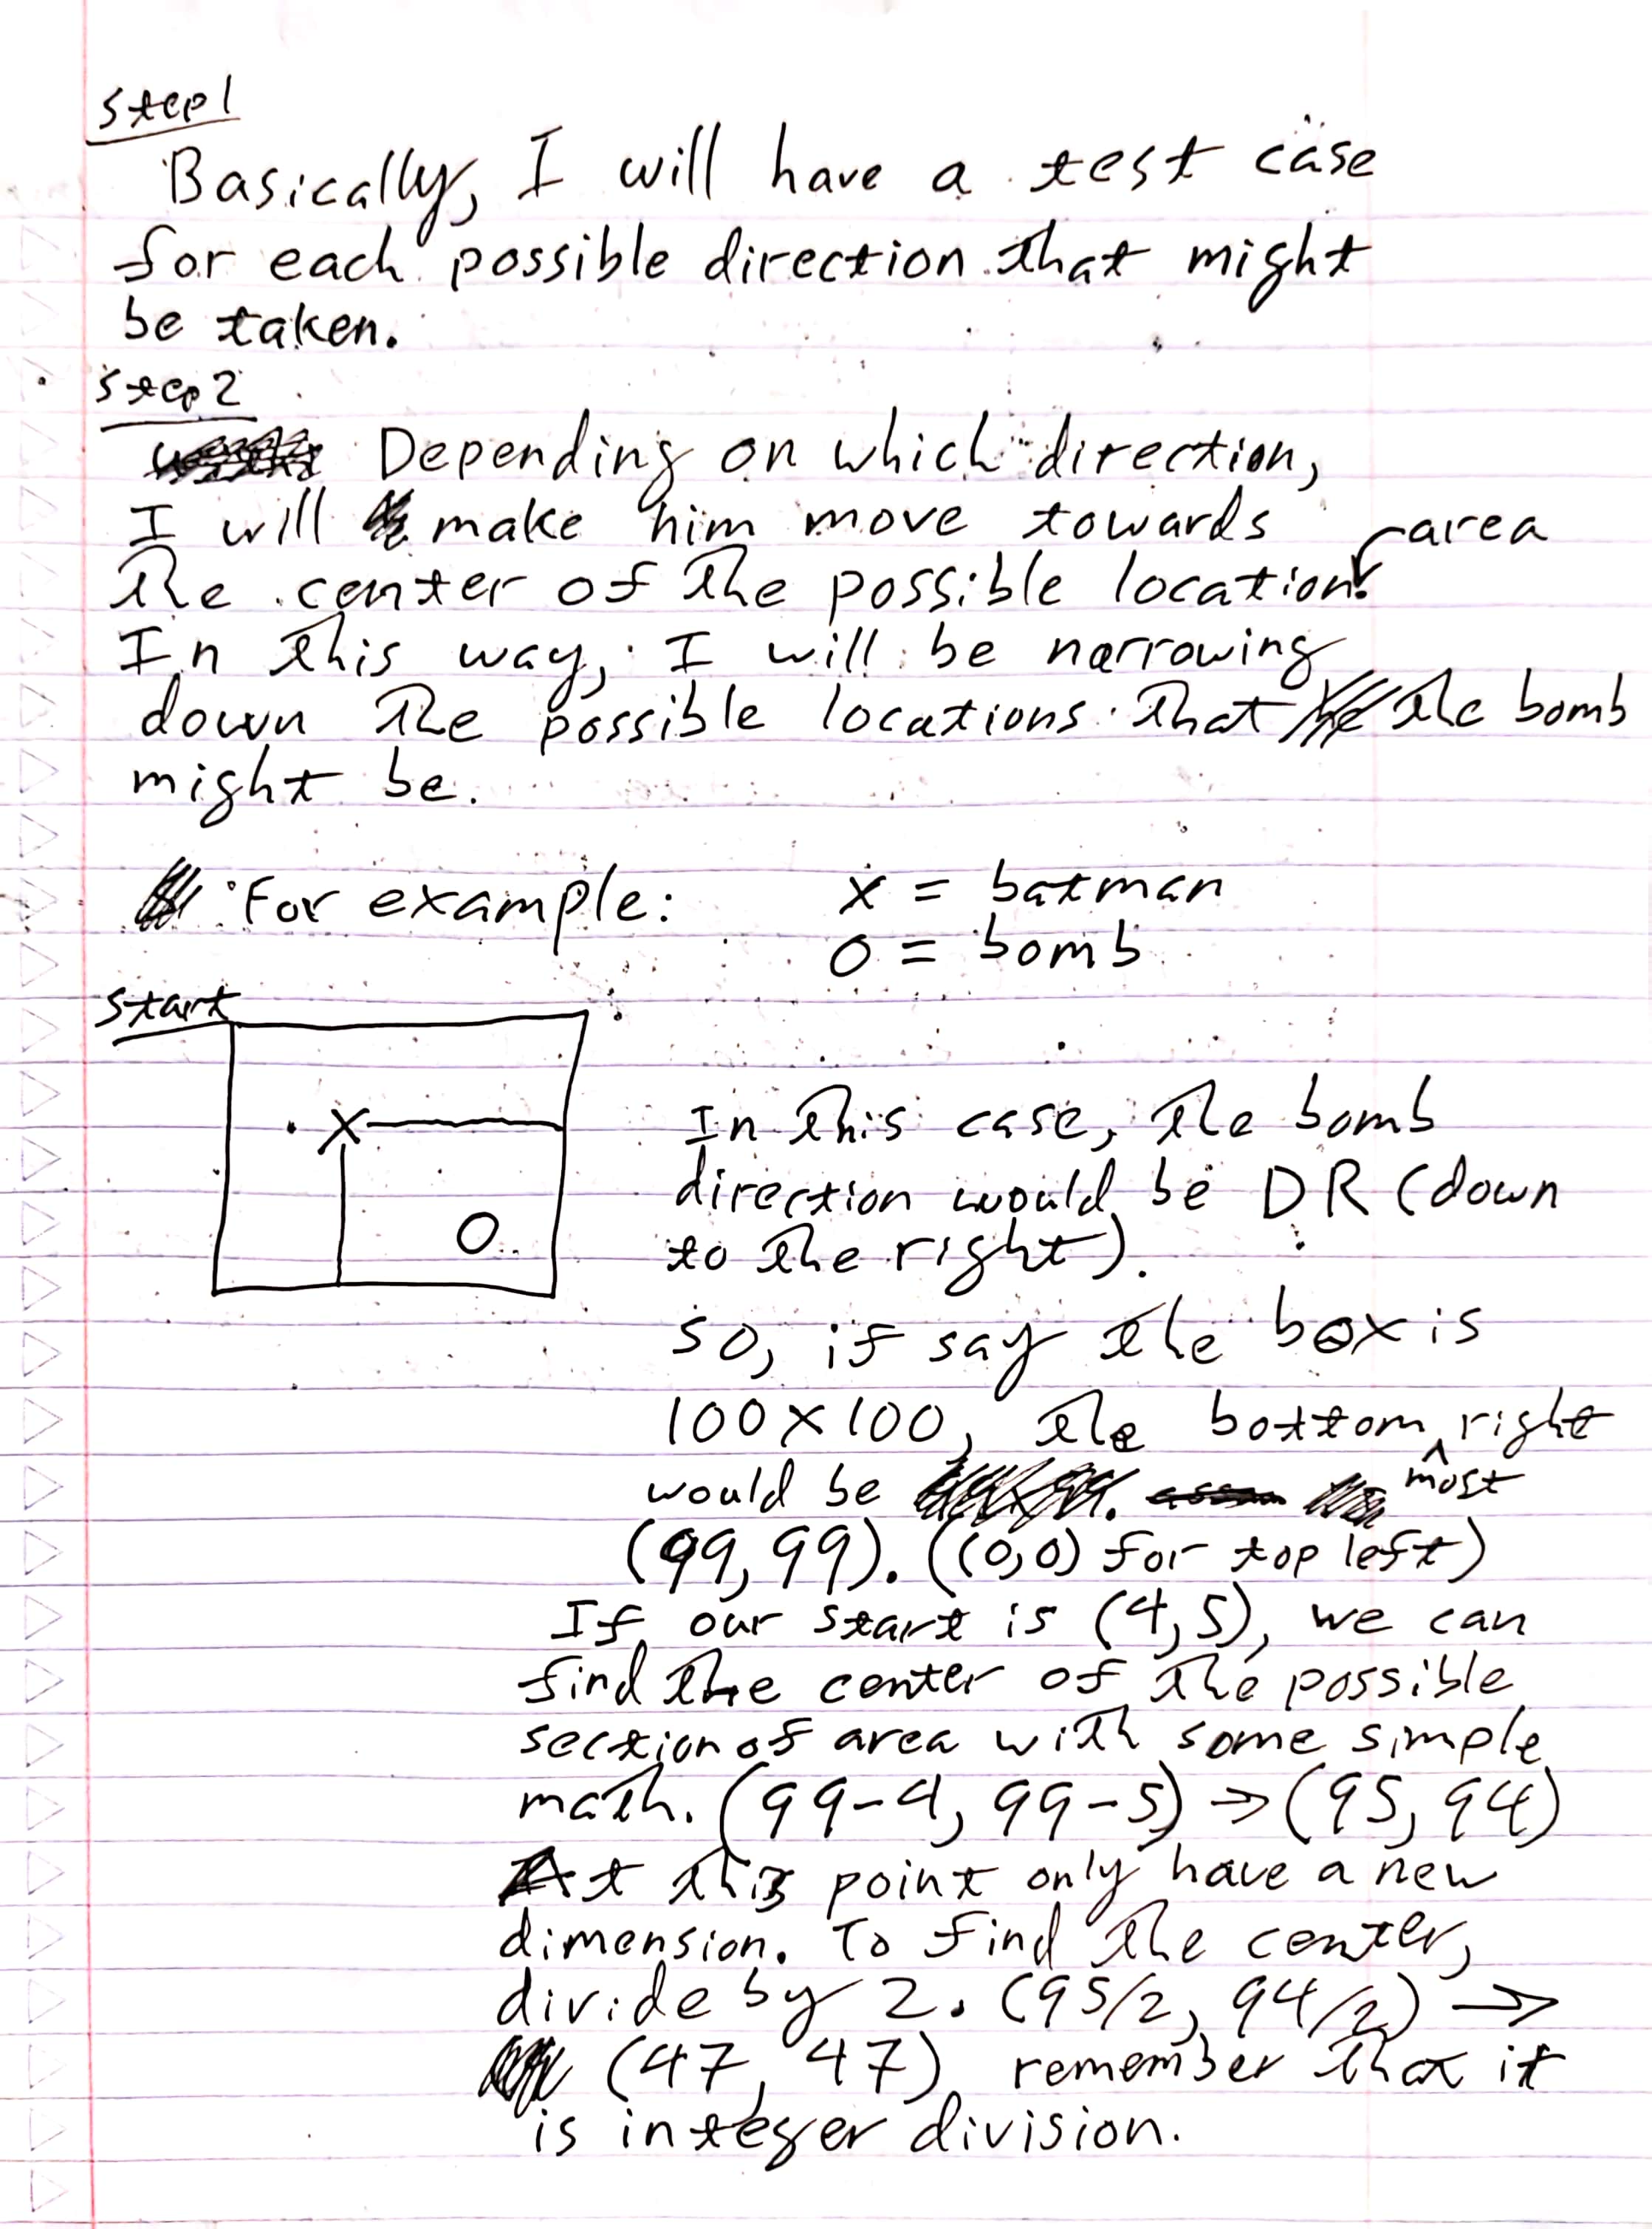 step1
Basically, I will have a test case
for each possible direction that might
be taken.
step2
Depending on which direction,
I will make him move towards
the center of the possible location area.
In this way, I will be narrowing
down the possible locations that the bomb
might be.
For example:
x = batman
O = bomb
start
X
O
In this case, the bomb
direction would be DR (down
to the right).
so, if say the box is
100x100, the bottom most right
would be
(99, 99). ((0,0) for top left)
If our start is (4,5), we can
find the center of the possible
section of area with some simple
math. (99-4, 99-5) → (95, 94)
At this point only have a new
dimension. To find the center,
divide by 2. (95/2, 94/2) →
(47, 47) remember that it
is integer division.